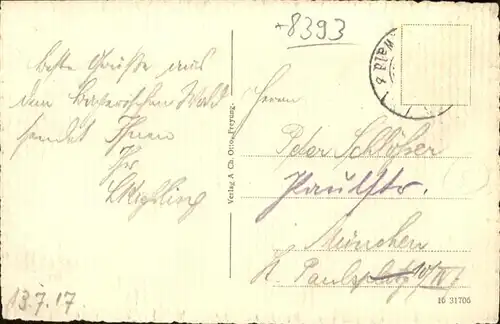 8393
Wald b
Beste Grüße aus
dem Bayerischen Wald
sendet Ihnen
Ihr
13.7.17
Verlag A Ch. Otto, Freyung.
Herrn
Peter Schlößer
Paulstr.
München
St. Paulsplatz 10/IV
16 31706